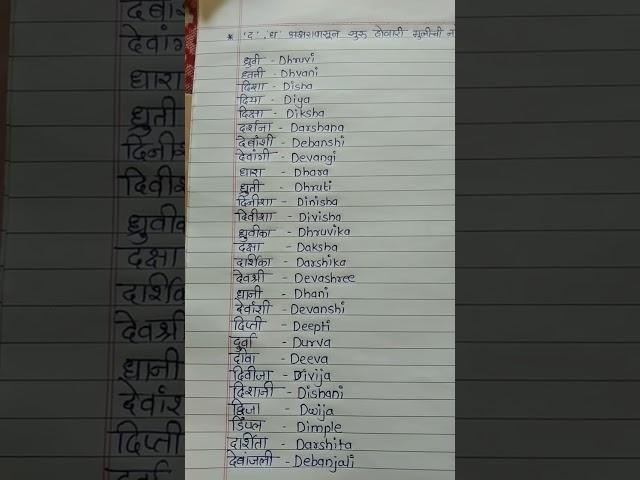 * 'द', 'ध' अक्षरापासून सुरु होणारी मुलींची
ध्रुवी - Dhruvi
ध्वनी - Dhvani
दिशा - Disha
दिया - Diya
दिक्षा - Diksha
दर्शना - Darshana
देबांशी - Debanshi
देवांगी - Devangi
धारा - Dhara
ध्रुती - Dhruti
दिनीशा - Dinisha
दिवीशा - Divisha
ध्रुवीका - Dhruvika
दक्षा - Daksha
दार्शिका - Darshika
देवश्री - Devashree
धानी - Dhani
देवांशी - Devanshi
दिप्ती - Deepti
दुर्वा - Durva
दीवा - Deeva
दिवीजा - Divija
दिशानी - Dishani
द्विजा - Dwija
डिंपल - Dimple
दार्शिता - Darshita
देबांजली - Debanjali